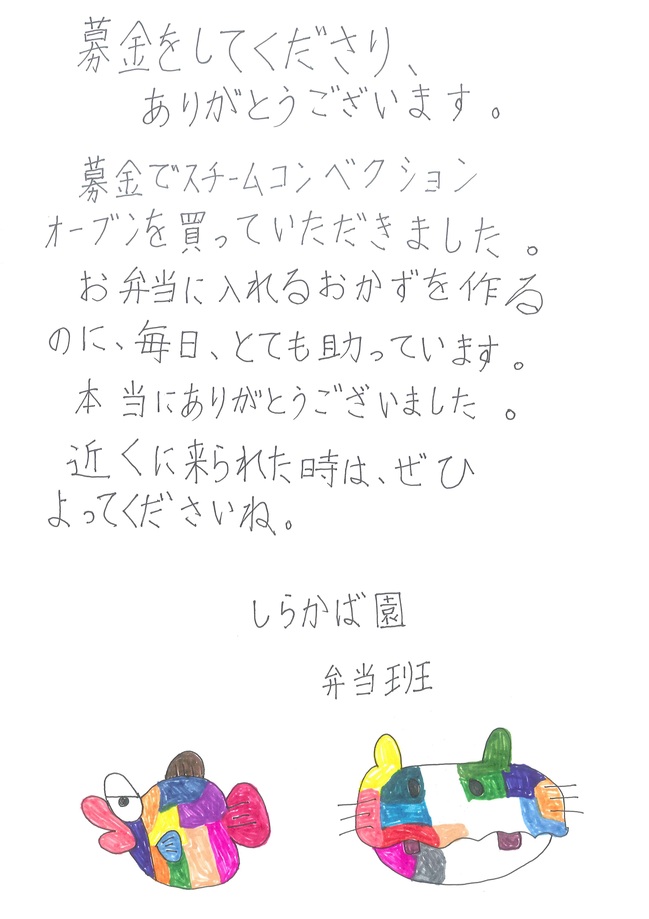 募金をしてくださり、
ありがとうございます。
募金でスチームコンベクション
オーブンを買っていただきました。
お弁当に入れるおかずを作る
のに、毎日、とても助っています。
本当にありがとうございました。
近くに来られた時は、ぜひ
よってくださいね。
しらかば園
弁当班